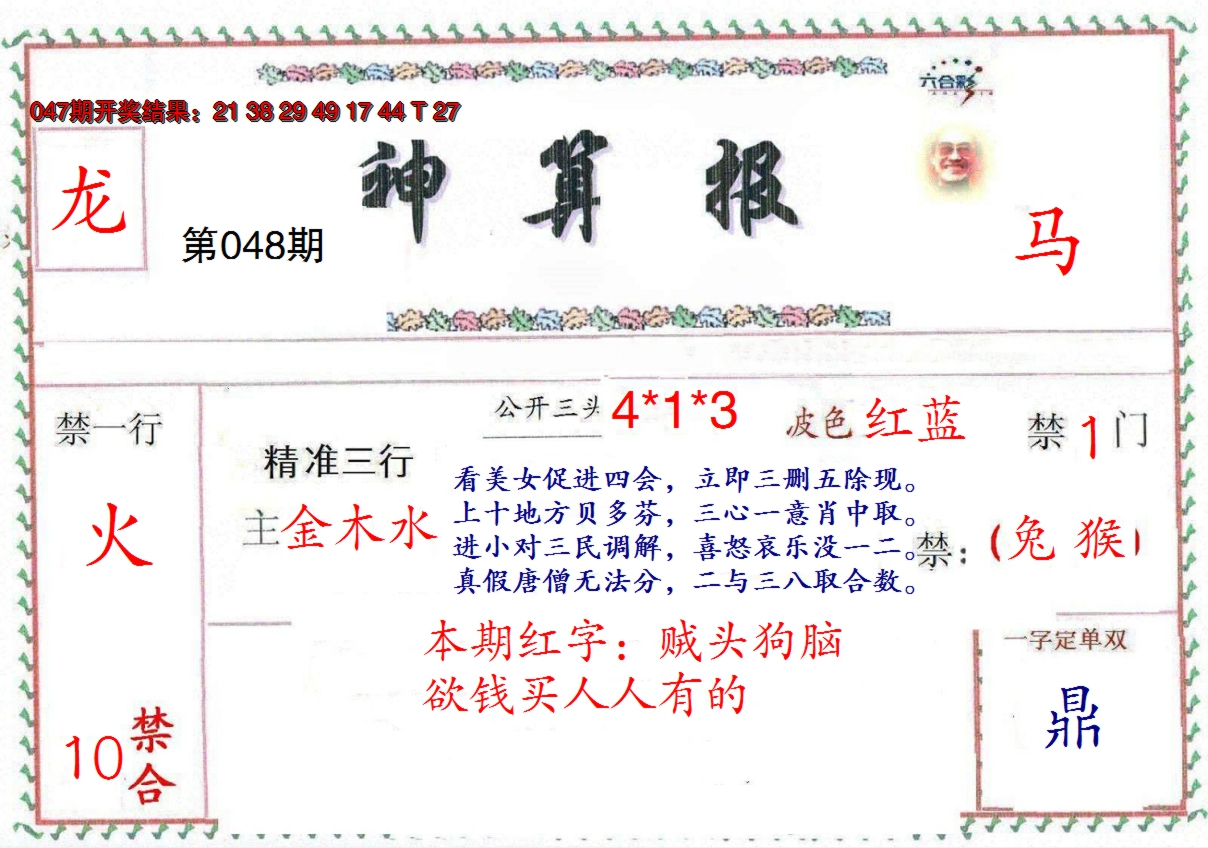 六合彩
047期开奖结果：21 38 29 49 17 44 T 27
神算报
龙
第048期
马
公开三头 4*1*3
波色 红蓝
禁一行
禁1门
精准三行
看美女促进四会，立即三删五除现。
主金木水
上十地方贝多芬，三心一意肖中取。
火
进小对三民调解，喜怒哀乐没一二。
禁：（兔 猴）
真假唐僧无法分，二与三八取合数。
本期红字：贼头狗脑
一字定单双
欲钱买人人有的
鼎
10禁合